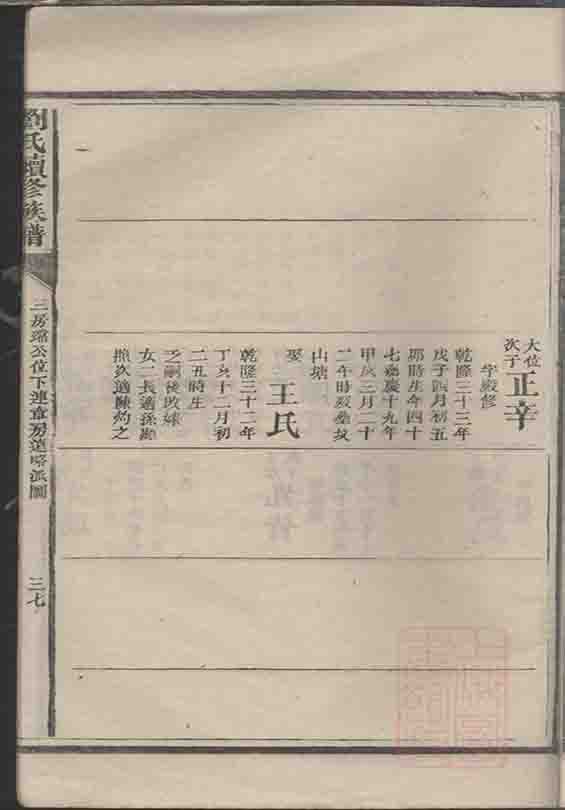 大位
次子
正辛
字殿修
乾隆三十三年
戊子四月初五
卯時生今四十
七嘉慶十九年
甲戌三月二十
二午時歿塟坟
山塘
娶
王氏
乾隆三十二年
丁亥十二月初
二丑時生
乏嗣後改嫁
女二長適孫
照次適陳灼之
劉氏續修族譜
三房 公位下連 房 派圖
三七